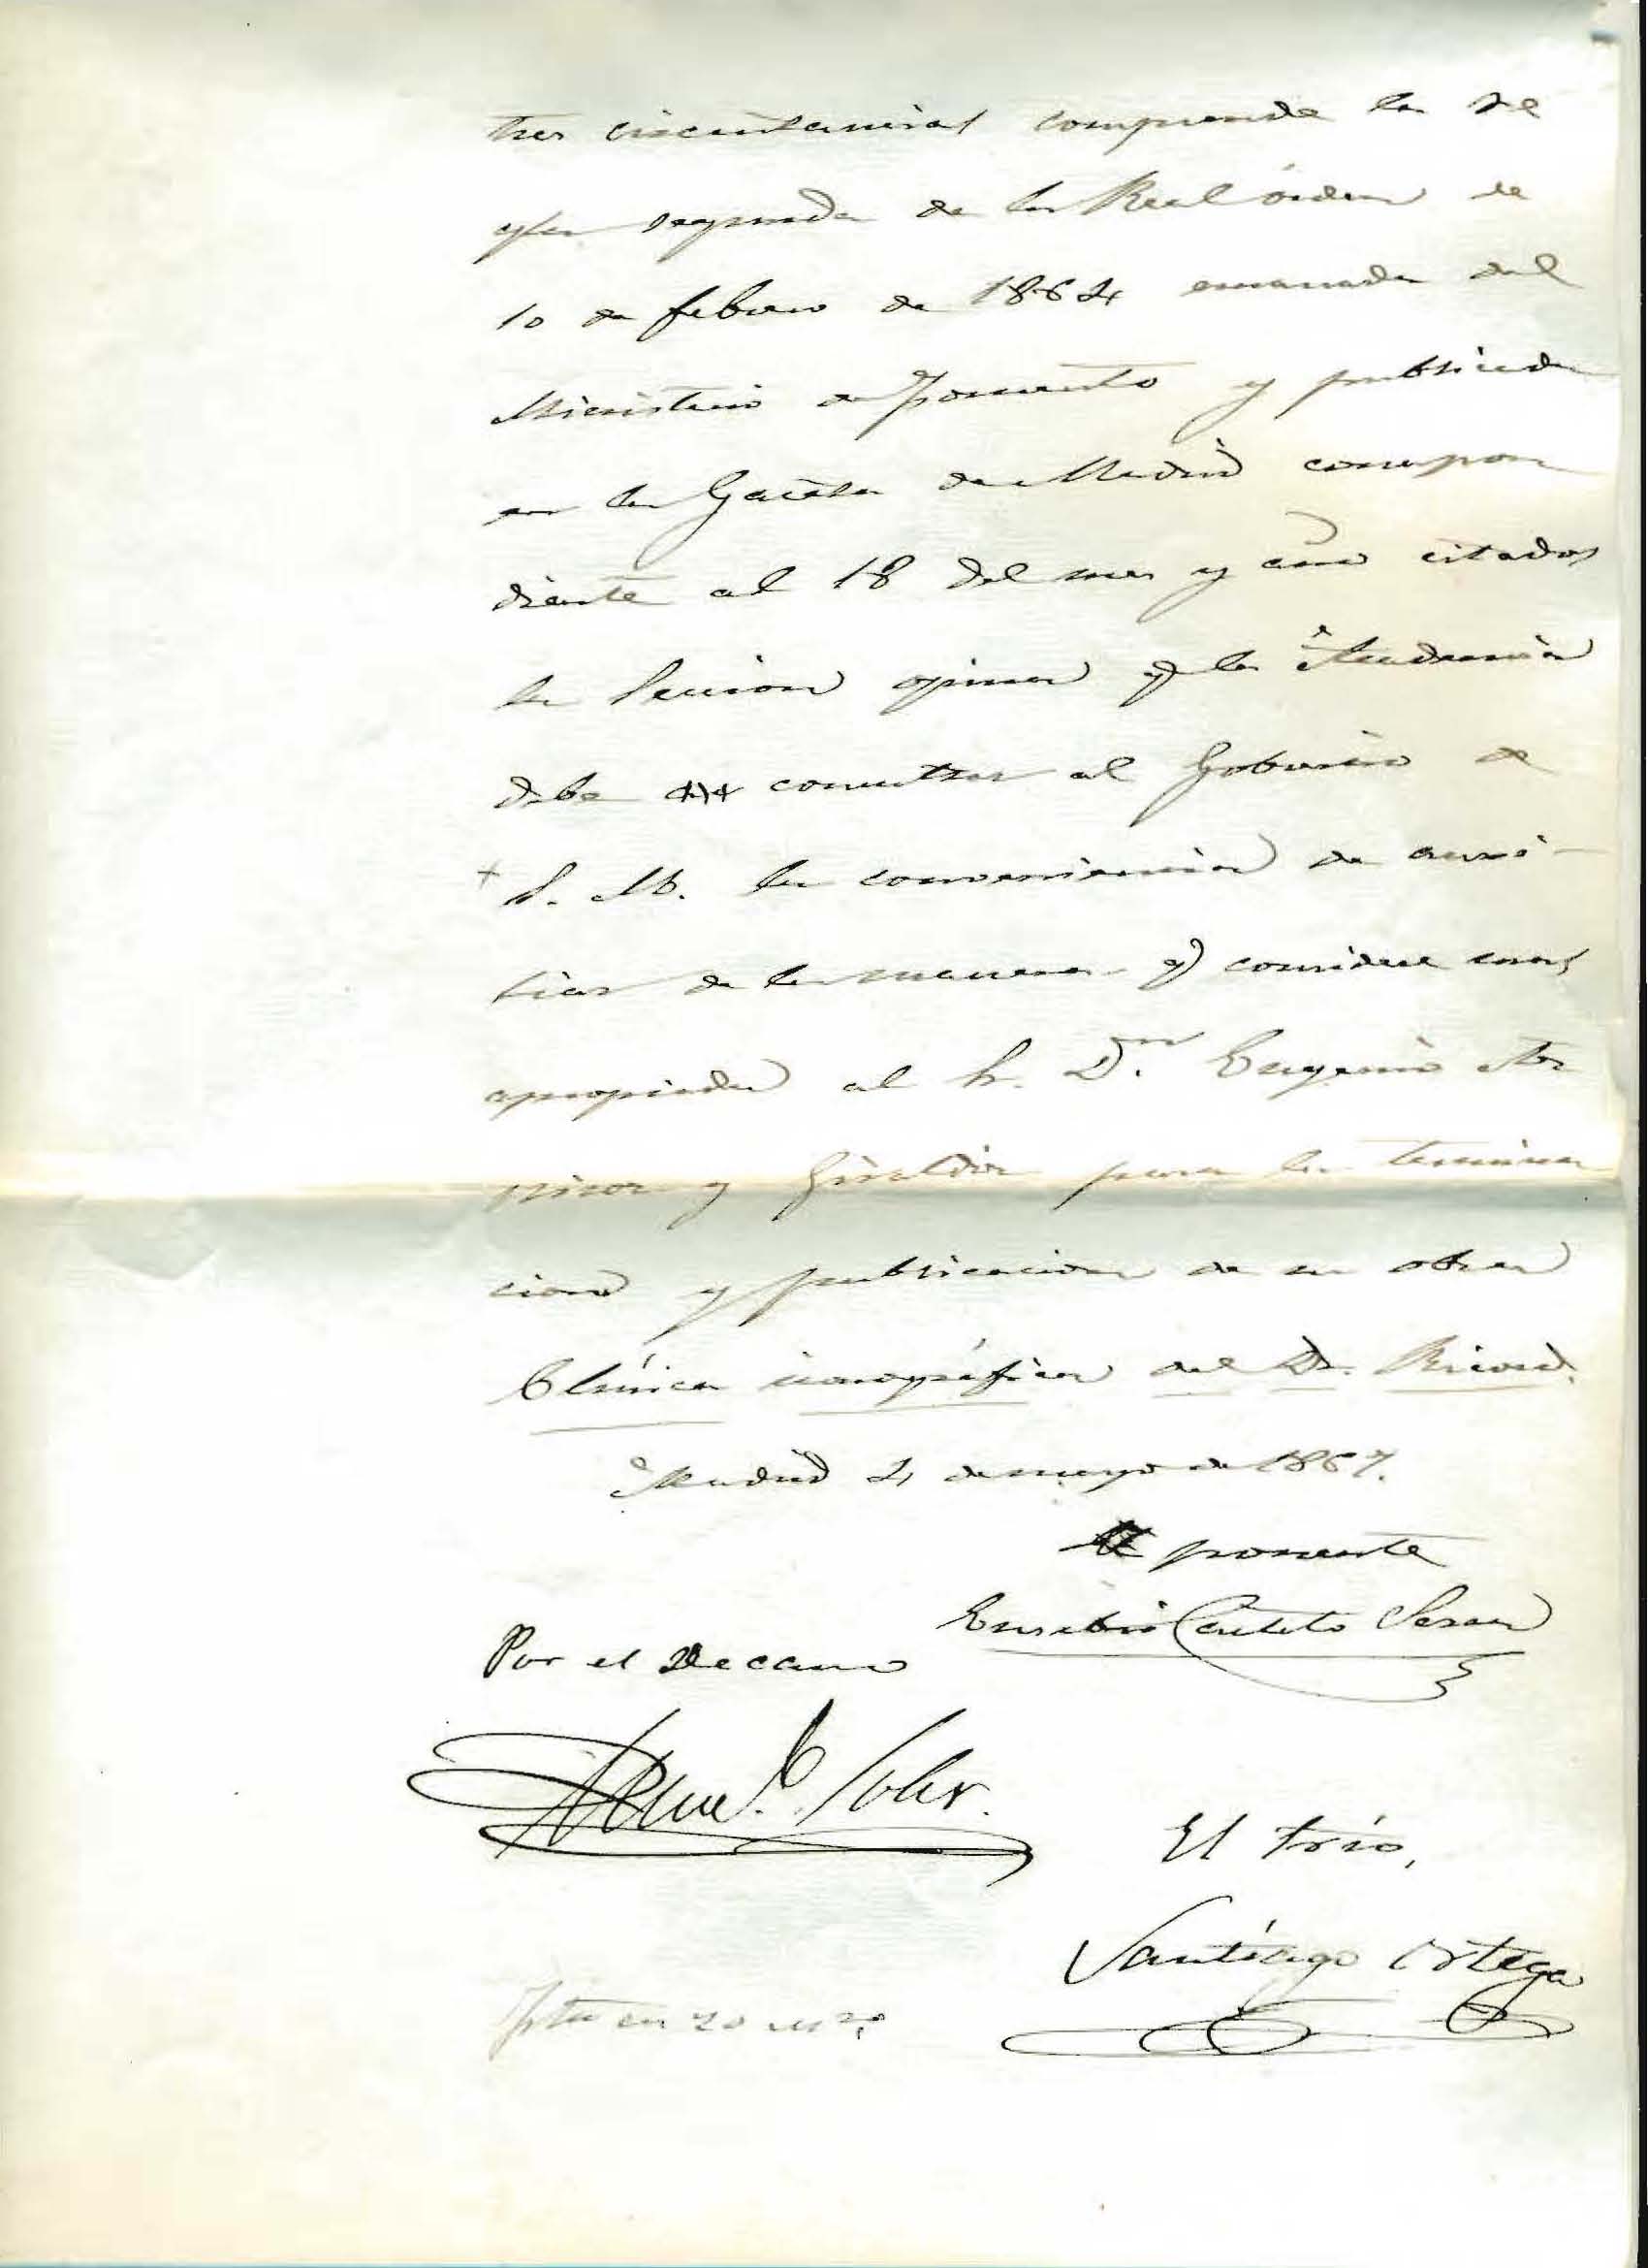 tres circunstancias comprende la de
gla segunda de la Real órden de
10 de febrero de 1864 emanada del
Ministerio de Fomento y publicada
en la Gaceta de Madrid correspon
diente al 18 del mes y año citados
la Seccion opina q la Academia
debe consultar al Gobierno de
+ S. M. la conveniencia de auxi-
liar de la manera q considere mas
apropiada al Sr. Dn. Eugenio
y Giraldez para la termina
cion y publicacion de su obra
Clínica iconográfica del Dr. Ricord.
Madrid 4 de mayo de 1867.
ponente
Eusebio Castelo Serra
Por el Decano
Soler.
El Srio,
Santiago Ortega
en 20